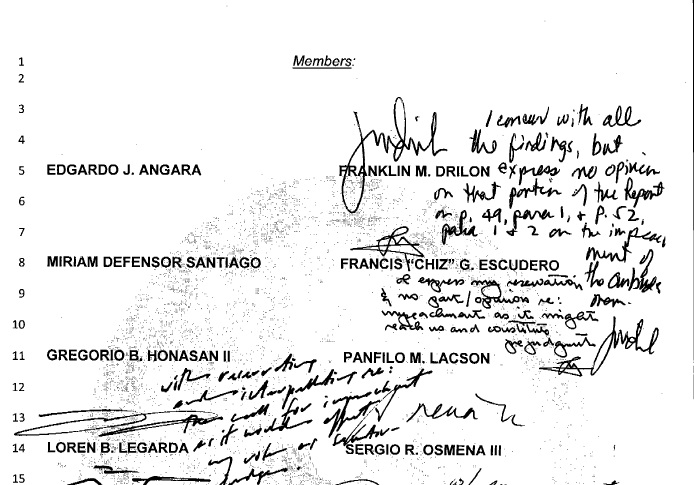 1 Members:
2
3 I concur with all
4 the findings, but
5 EDGARDO J. ANGARA FRANKLIN M. DRILON express no opinion
on that portion of the Report
6 on p. 49, para 1, & p. 52,
7 para 1 & 2 on the impeach
ment of
8 MIRIAM DEFENSOR SANTIAGO FRANCIS ("CHIZ" G. ESCUDERO
the Ombuds
I express my reservation
man.
9 & no part/opinion re:
impeachment as it might
10 reach us and constitute
prejudgment
11 GREGORIO B. HONASAN II PANFILO M. LACSON
with reservations
and interpellating re:
12 the call for impeachment
13 as it would affect
14 LOREN B. LEGARDA SERGIO R. OSMENA III
my vote as
judge.
15